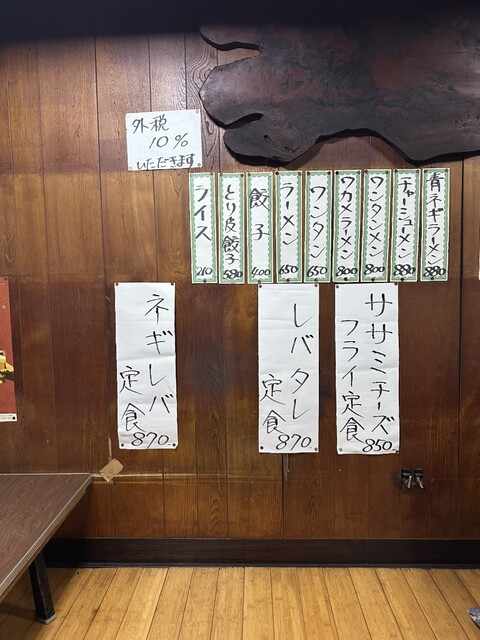 外税
10%
いただきます
青ネギラーメン
880
チャーシューメン
880
ワンタンメン
800
ワカメラーメン
800
ワンタン
650
ラーメン
650
餃子
400
とり皮餃子
580
ライス
210
ササミチーズ
フライ定食
850
レバタレ
定食
870
ネギレバ
定食
870